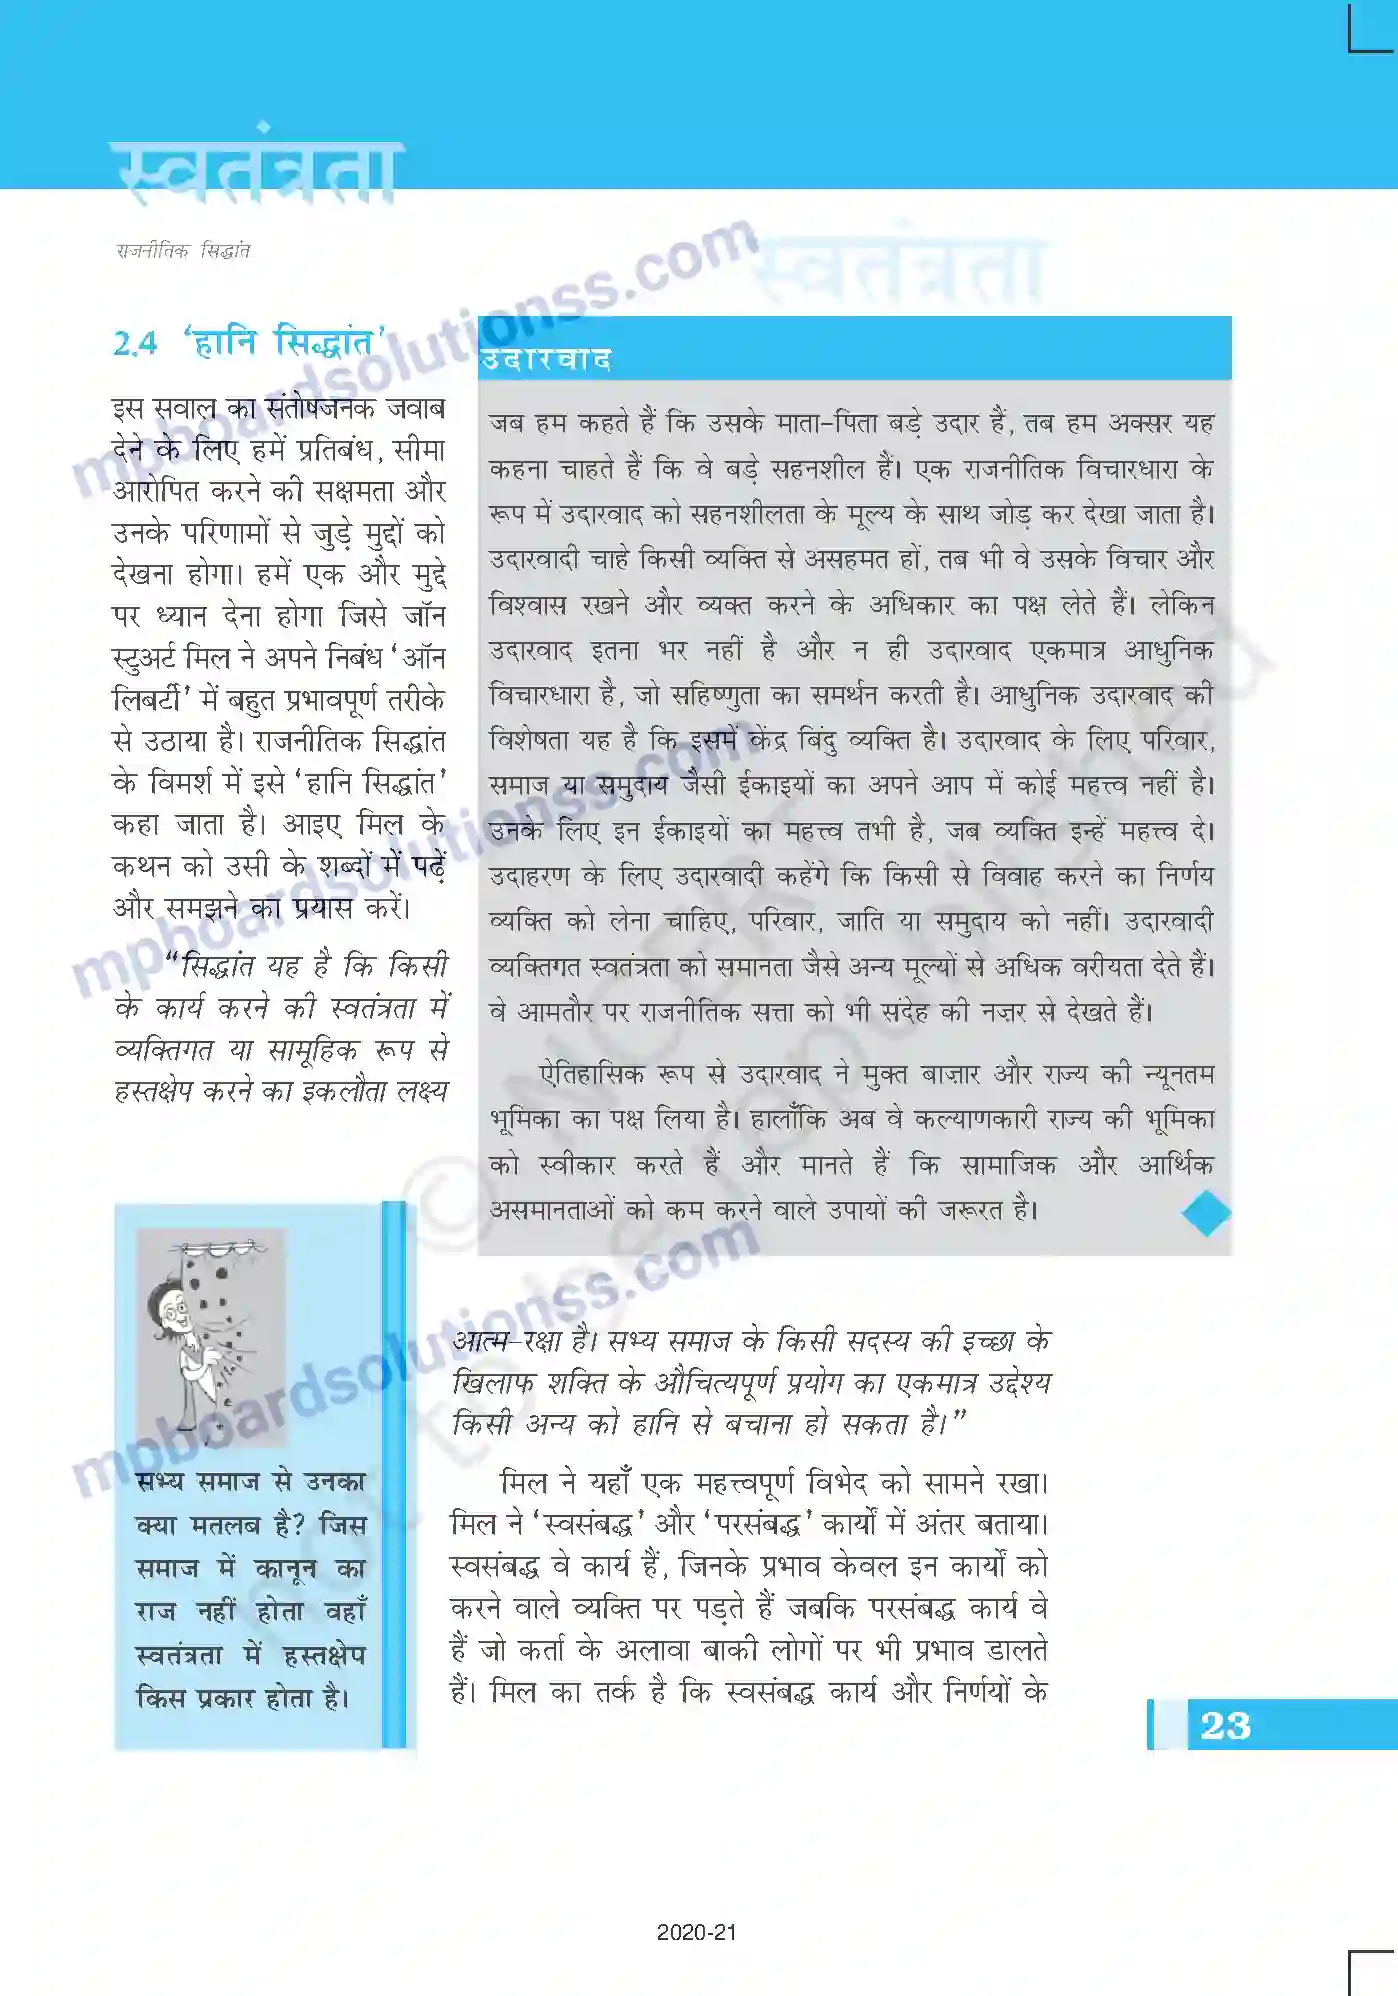 स्वतंत्रता
राजनीतिक सिद्धांत
स्वतंत्रता
2.4 ‘हानि सिद्धांत’
इस सवाल का संतोषजनक जवाब
देने के लिए हमें प्रतिबंध, सीमा
आरोपित करने की सक्षमता और
उनके परिणामों से जुड़े मुद्दों को
देखना होगा। हमें एक और मुद्दे
पर ध्यान देना होगा जिसे जॉन
स्टुअर्ट मिल ने अपने निबंध ‘ऑन
लिबर्टी’ में बहुत प्रभावपूर्ण तरीके
से उठाया है। राजनीतिक सिद्धांत
के विमर्श में इसे ‘हानि सिद्धांत’
कहा जाता है। आइए मिल के
कथन को उसी के शब्दों में पढ़ें
और समझने का प्रयास करें।
“सिद्धांत यह है कि किसी
के कार्य करने की स्वतंत्रता में
व्यक्तिगत या सामूहिक रूप से
हस्तक्षेप करने का इकलौता लक्ष्य
उदारवाद
जब हम कहते हैं कि उसके माता-पिता बड़े उदार हैं, तब हम अक्सर यह
कहना चाहते हैं कि वे बड़े सहनशील हैं। एक राजनीतिक विचारधारा के
रूप में उदारवाद को सहनशीलता के मूल्य के साथ जोड़ कर देखा जाता है।
उदारवादी चाहे किसी व्यक्ति से असहमत हों, तब भी वे उसके विचार और
विश्वास रखने और व्यक्त करने के अधिकार का पक्ष लेते हैं। लेकिन
उदारवाद इतना भर नहीं है और न ही उदारवाद एकमात्र आधुनिक
विचारधारा है, जो सहिष्णुता का समर्थन करती है। आधुनिक उदारवाद की
विशेषता यह है कि इसमें केंद्र बिंदु व्यक्ति है। उदारवाद के लिए परिवार,
समाज या समुदाय जैसी ईकाइयों का अपने आप में कोई महत्त्व नहीं है।
उनके लिए इन ईकाइयों का महत्त्व तभी है, जब व्यक्ति इन्हें महत्त्व दे।
उदाहरण के लिए उदारवादी कहेंगे कि किसी से विवाह करने का निर्णय
व्यक्ति को लेना चाहिए, परिवार, जाति या समुदाय को नहीं। उदारवादी
व्यक्तिगत स्वतंत्रता को समानता जैसे अन्य मूल्यों से अधिक वरीयता देते हैं।
वे आमतौर पर राजनीतिक सत्ता को भी संदेह की नज़र से देखते हैं।
ऐतिहासिक रूप से उदारवाद ने मुक्त बाज़ार और राज्य की न्यूनतम
भूमिका का पक्ष लिया है। हालाँकि अब वे कल्याणकारी राज्य की भूमिका
को स्वीकार करते हैं और मानते हैं कि सामाजिक और आर्थिक
असमानताओं को कम करने वाले उपायों की जरूरत है।
आत्म-रक्षा है। सभ्य समाज के किसी सदस्य की इच्छा के
खिलाफ शक्ति के औचित्यपूर्ण प्रयोग का एकमात्र उद्देश्य
किसी अन्य को हानि से बचाना हो सकता है।”
मिल ने यहाँ एक महत्त्वपूर्ण विभेद को सामने रखा।
मिल ने ‘स्वसंबद्ध’ और ‘परसंबद्ध’ कार्यों में अंतर बताया।
स्वसंबद्ध वे कार्य हैं, जिनके प्रभाव केवल इन कार्यों को
करने वाले व्यक्ति पर पड़ते हैं जबकि परसंबद्ध कार्य वे
हैं जो कर्ता के अलावा बाकी लोगों पर भी प्रभाव डालते
हैं। मिल का तर्क है कि स्वसंबद्ध कार्य और निर्णयों के
सभ्य समाज से उनका
क्या मतलब है? जिस
समाज में कानून का
राज नहीं होता वहाँ
स्वतंत्रता में हस्तक्षेप
किस प्रकार होता है।
23
2020-21
mpboardsolutionss.com
mpboardsolutionss.com
mpboardsolutionss.com
© NCERT
not to be republished